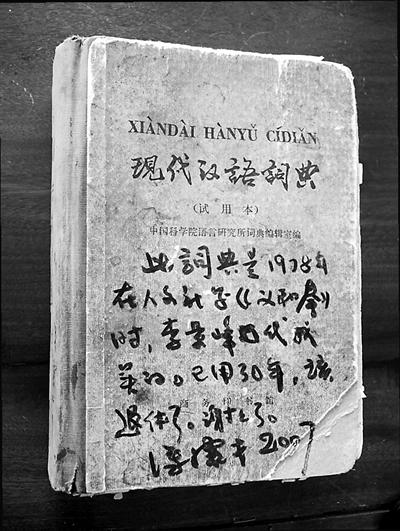 XIÀNDÀI HÀNYǓ CÍDIǍN
現代汉語詞典
(试用本)
中国科学院语言研究所词典编辑室编
此詞典是1978年
在人文社写《义和拳》
时，李景峰代我
买的。已用30年，该
商务印书馆
退休了。谢谢了。
冯骥才 2007